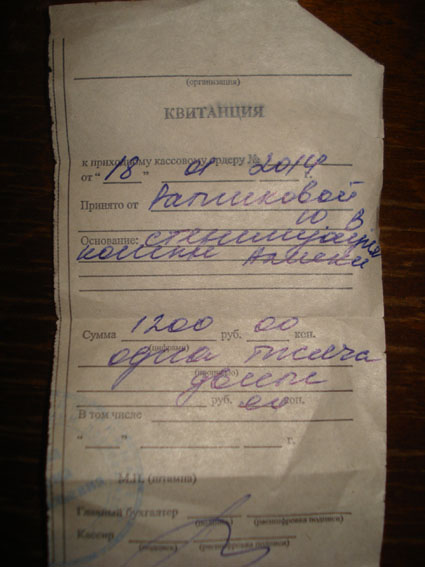 (организация)
КВИТАНЦИЯ
к приходному кассовому ордеру №
от " 18 " 01 2014
Принято от
Ю. В
Основание:
кошки
Сумма 1200 руб. 00 коп.
(цифрами)
одна тысяча
(прописью)
руб. 00 коп.
В том числе
" " г.
М.П. (штампа)
Главный бухгалтер
(подпись) (расшифровка подписи)
Кассир
(подпись) (расшифровка подписи)